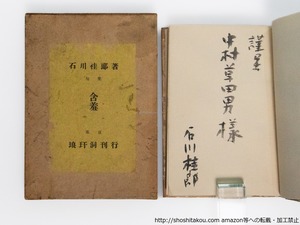 石川桂郎著
含羞
琅玕洞刊行
謹呈
中村草田男様
石川桂郎
http://shoshitakou.com amazon等への転載・加工禁止